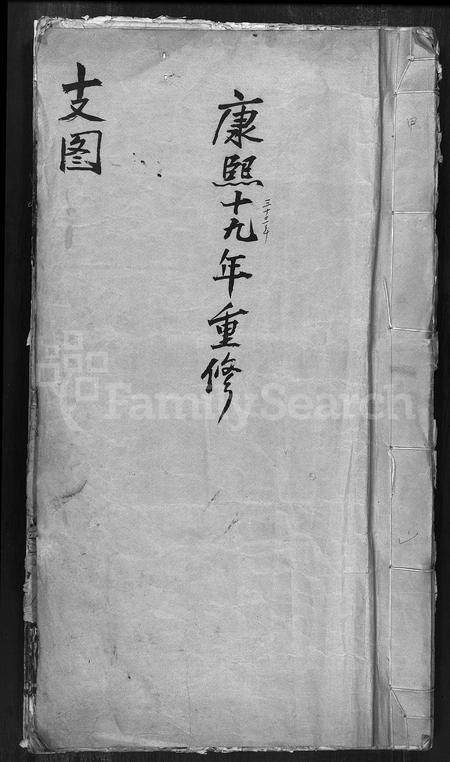 康熙十九年重修
三十三年
十支图
甲
FamilySearch